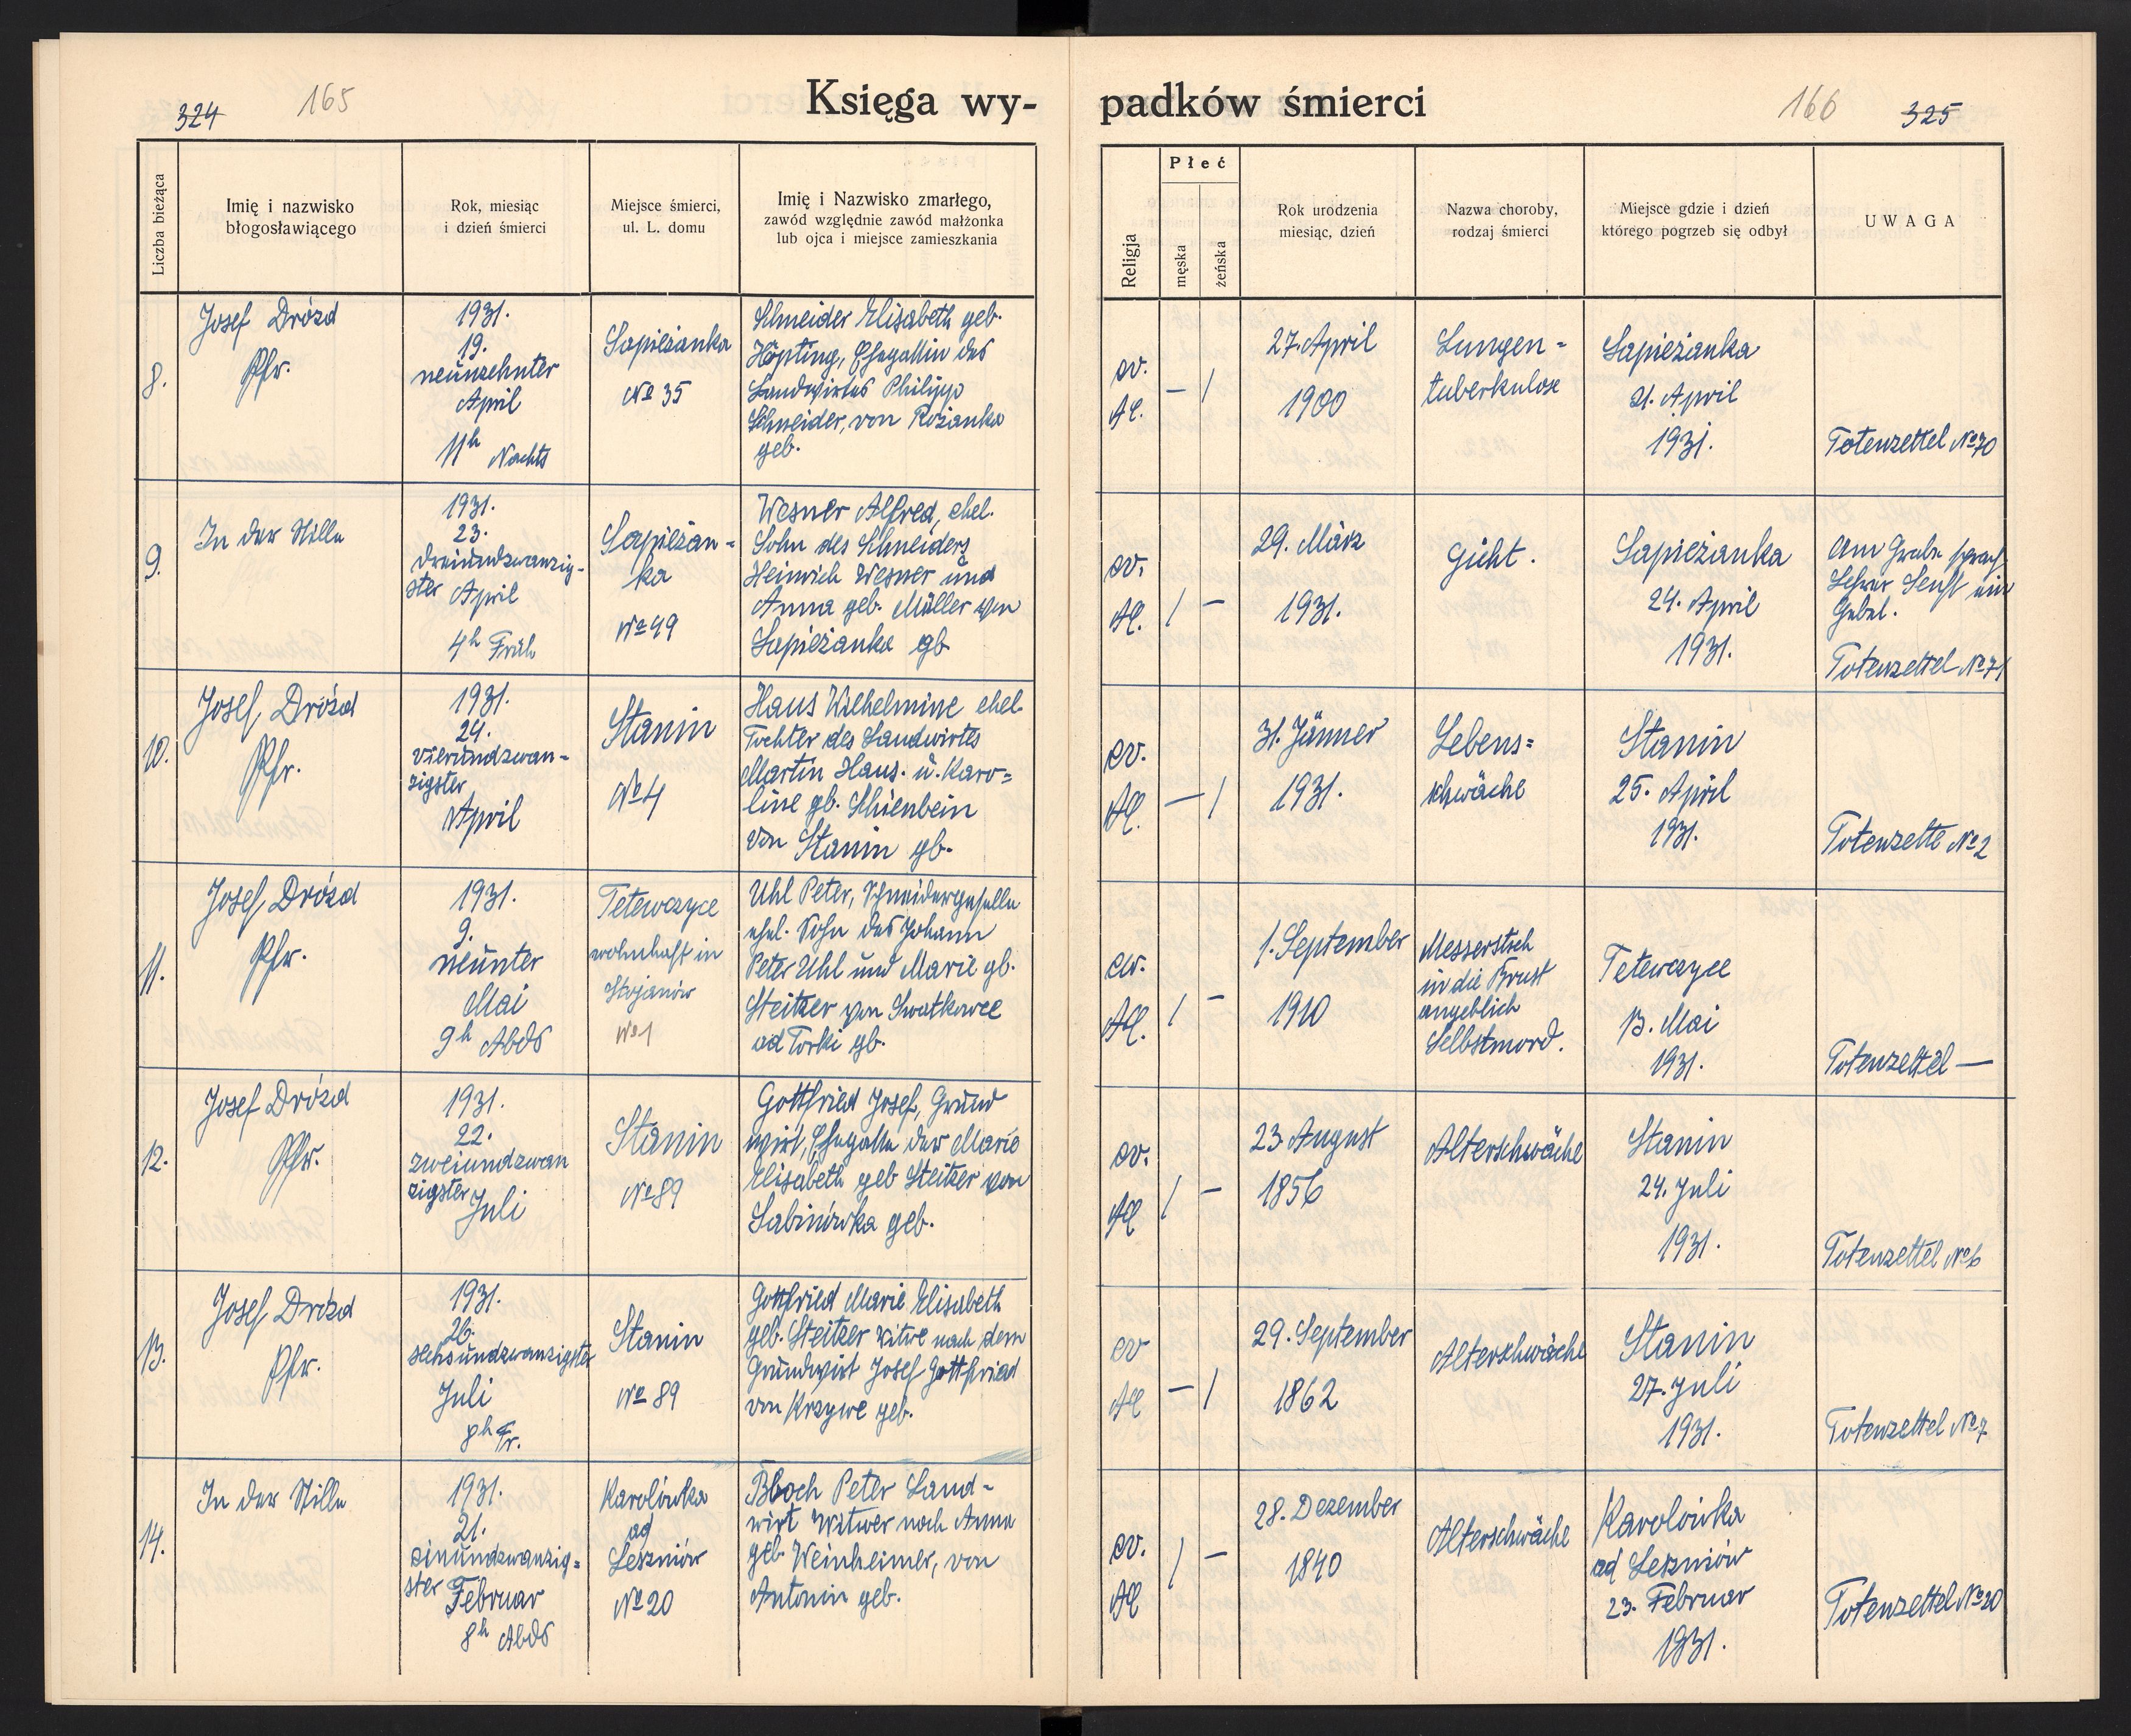 324
165
Księga wy-
padków śmierci
166
325
Liczba bieżąca
Imię i nazwisko
błogosławiącego
Rok, miesiąc
i dzień śmierci
Miejsce śmierci,
ul. L. domu
Imię i Nazwisko zmarłego,
zawód względnie zawód małżonka
lub ojca i miejsce zamieszkania
Religja
Płeć
męska
żeńska
Rok urodzenia
miesiąc, dzień
Nazwa choroby,
rodzaj śmierci
Miejsce gdzie i dzień
którego pogrzeb się odbył
UWAGA
8.
Josef Drózd
Pfr.
1931.
19.
neunzehnter
April
11h Nachts
Sapieżanka
No 35
Schneider Elisabeth geb.
Höpting, Ehegattin des
Landwirtes Philipp
Schneider, von Rożanka
geb.
ev.
AC.
— 1
27. April
1900
Lungen=
tuberkulose
Sapieżanka
21. April
1931.
Totenzettel No 70
9.
In der Stille
1931.
23.
dreiundzwanzig-
ster April
4h Früh
Sapieżan=
ka
No 49
Wesner Alfred, ehel.
Sohn des Schneiders
Heinrich Wesner und
Anna geb. Müller von
Sapieżanka gb.
ev.
AC.
1 —
29. März
1931.
Gicht.
Sapieżanka
24. April
1931.
Am Grabe sprach
Lehrer Senft ein
Gebet.
Totenzettel No 71
10.
Josef Drózd
Pfr.
1931.
24.
vierundzwan-
zigster
April
Stanin
No 4
Haus Wilhelmine ehel.
Tochter des Landwirtes
Martin Haus. u. Karo=
line gb. Schienbein
von Stanin gb.
ev.
AC.
— 1
31. Jänner
1931.
Lebens=
schwäche
Stanin
25. April
1931.
Totenzette No 2
11.
Josef Drózd
Pfr.
1931.
9.
neunter
Mai
9h Abds
Tetewczyce
wohnhaft in
Stojanów
No 1
Uhl Peter, Schneidergeselle
ehel. Sohn des Johann
Peter Uhl und Marie gb.
Steitzer von Swatkowce
ad Torki gb.
ew.
AC.
1 —
1. September
1910
Messerstich
in die Brust
angeblich
Selbstmord.
Tetewczyce
13. Mai
1931.
Totenzettel —
12.
Josef Drózd
Pfr.
1931.
22.
zweiundzwan
zigster Juli
Stanin
No 89
Gottfried Josef, Grund
wirt, Ehegatte der Marie
Elisabeth geb Steitzer von
Sabinówka geb.
ev.
AC
1 —
23. August
1856
Alterschwäche
Stanin
24. Juli
1931.
Totenzettel No 6
13.
Josef Drózd
Pfr.
1931.
26.
sechsundzwanzigster
Juli
8h Fr.
Stanin
No 89
Gottfried Marie Elisabeth
geb. Steitzer Witwe nach dem
Grundwirt Josef Gottfried
von Krzywe geb.
ev
AC
— 1
29. September
1862
Alterschwäche
Stanin
27. Juli
1931.
Totenzettel No 7
14.
In der Stille
1931.
21.
einundzwanzig=
ster Februar
8h Abds
Karolówka
ad
Leszniów
No 20
Bloch Peter Land-
wirt Witwer nach Anna
geb. Weinheimer, von
Antonin geb.
ev.
AC
1 —
28. Dezember
1840
Alterschwäche
Karolówka
ad Leszniów
23. Februar
1931.
Totenzettel No 20